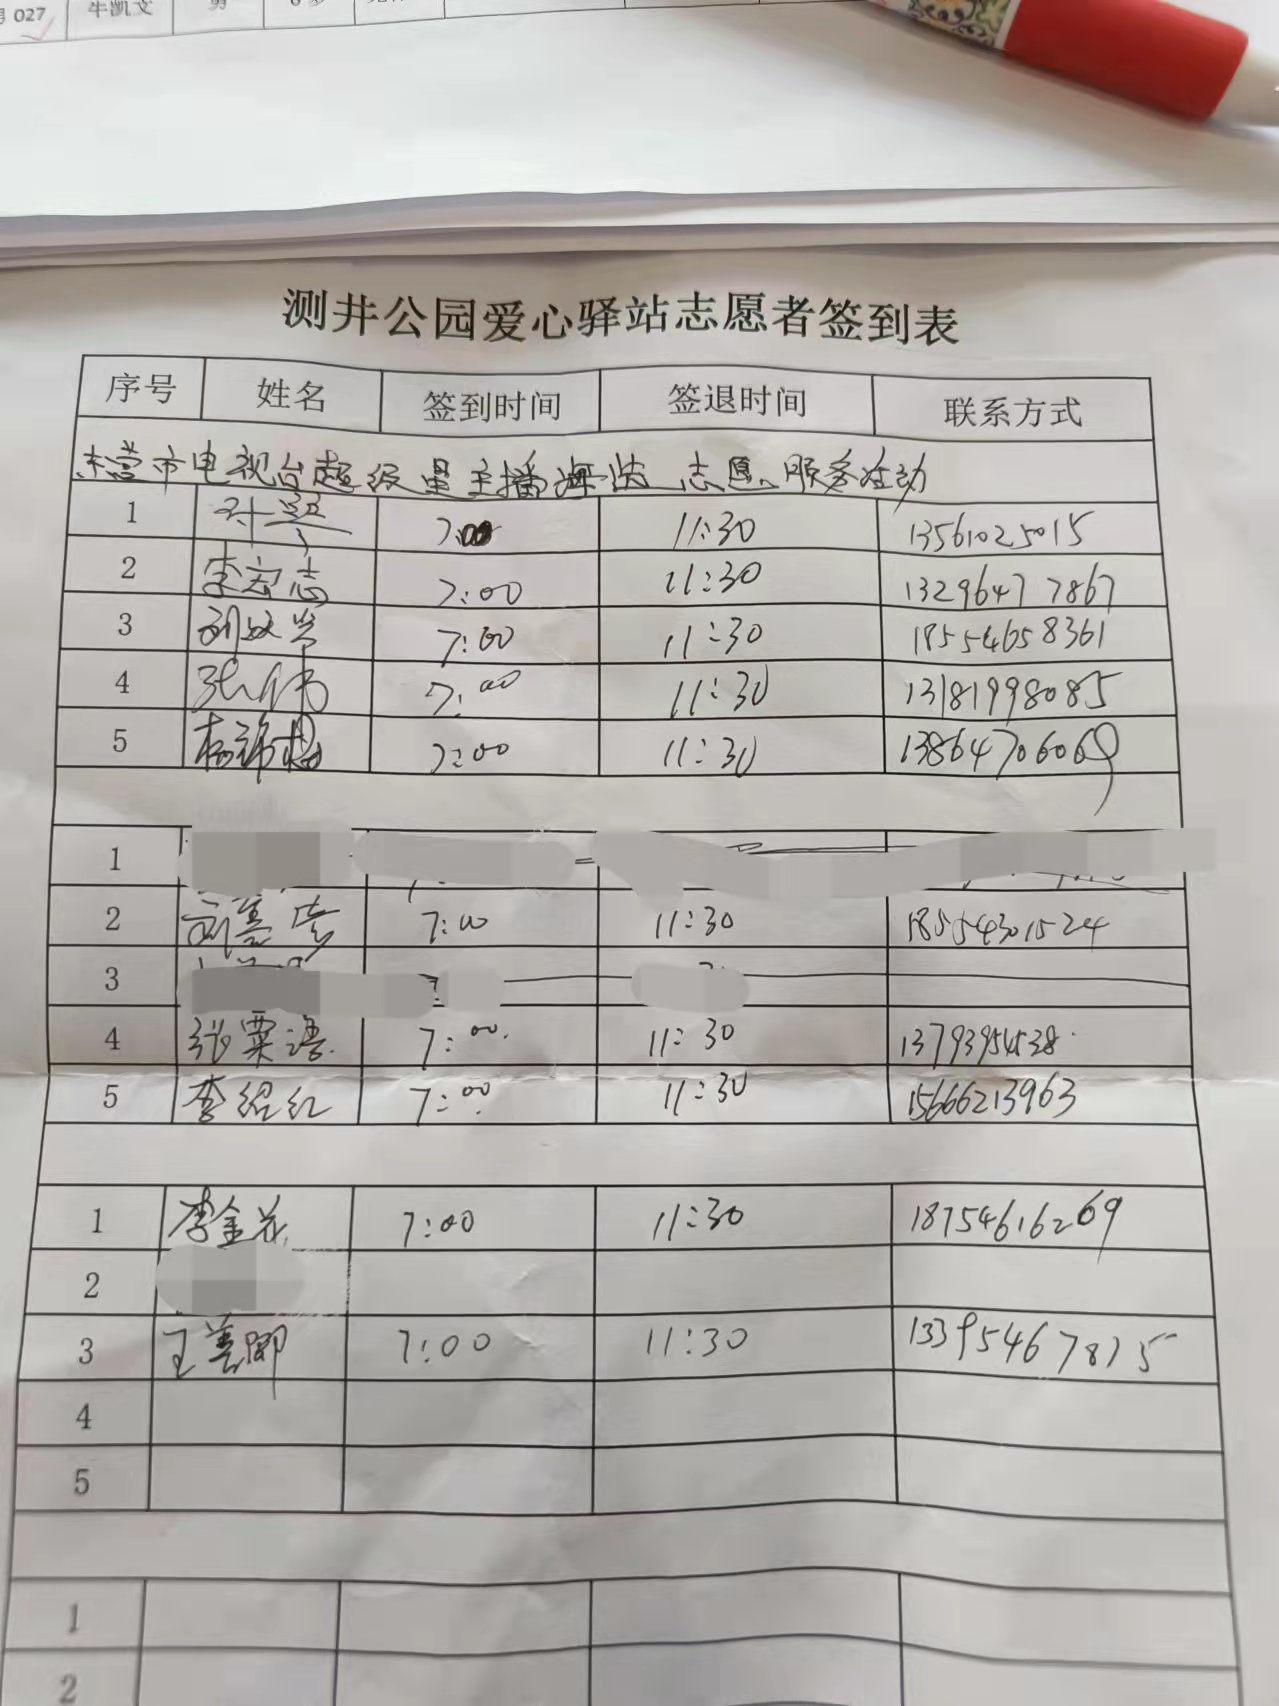 027 牛凯文 男
测井公园爱心驿站志愿者签到表
序号 姓名 签到时间 签退时间 联系方式
东营市电视台超级星主播海选 志愿服务活动
1 7:00 11:30 13561025015
2 李宏志 7:00 11:30 13296477867
3 7:00 11:30 18554658361
4 张伟 7:00 11:30 13181998085
5 7:00 11:30 13864706069
1
2 7:00 11:30 18554301524
3
4 张粟语 7:00 11:30 13793954538
5 李绍红 7:00 11:30 15666213963
1 李金花 7:00 11:30 18754616269
2
3 王善卿 7:00 11:30 13395467815
4
5
1
2